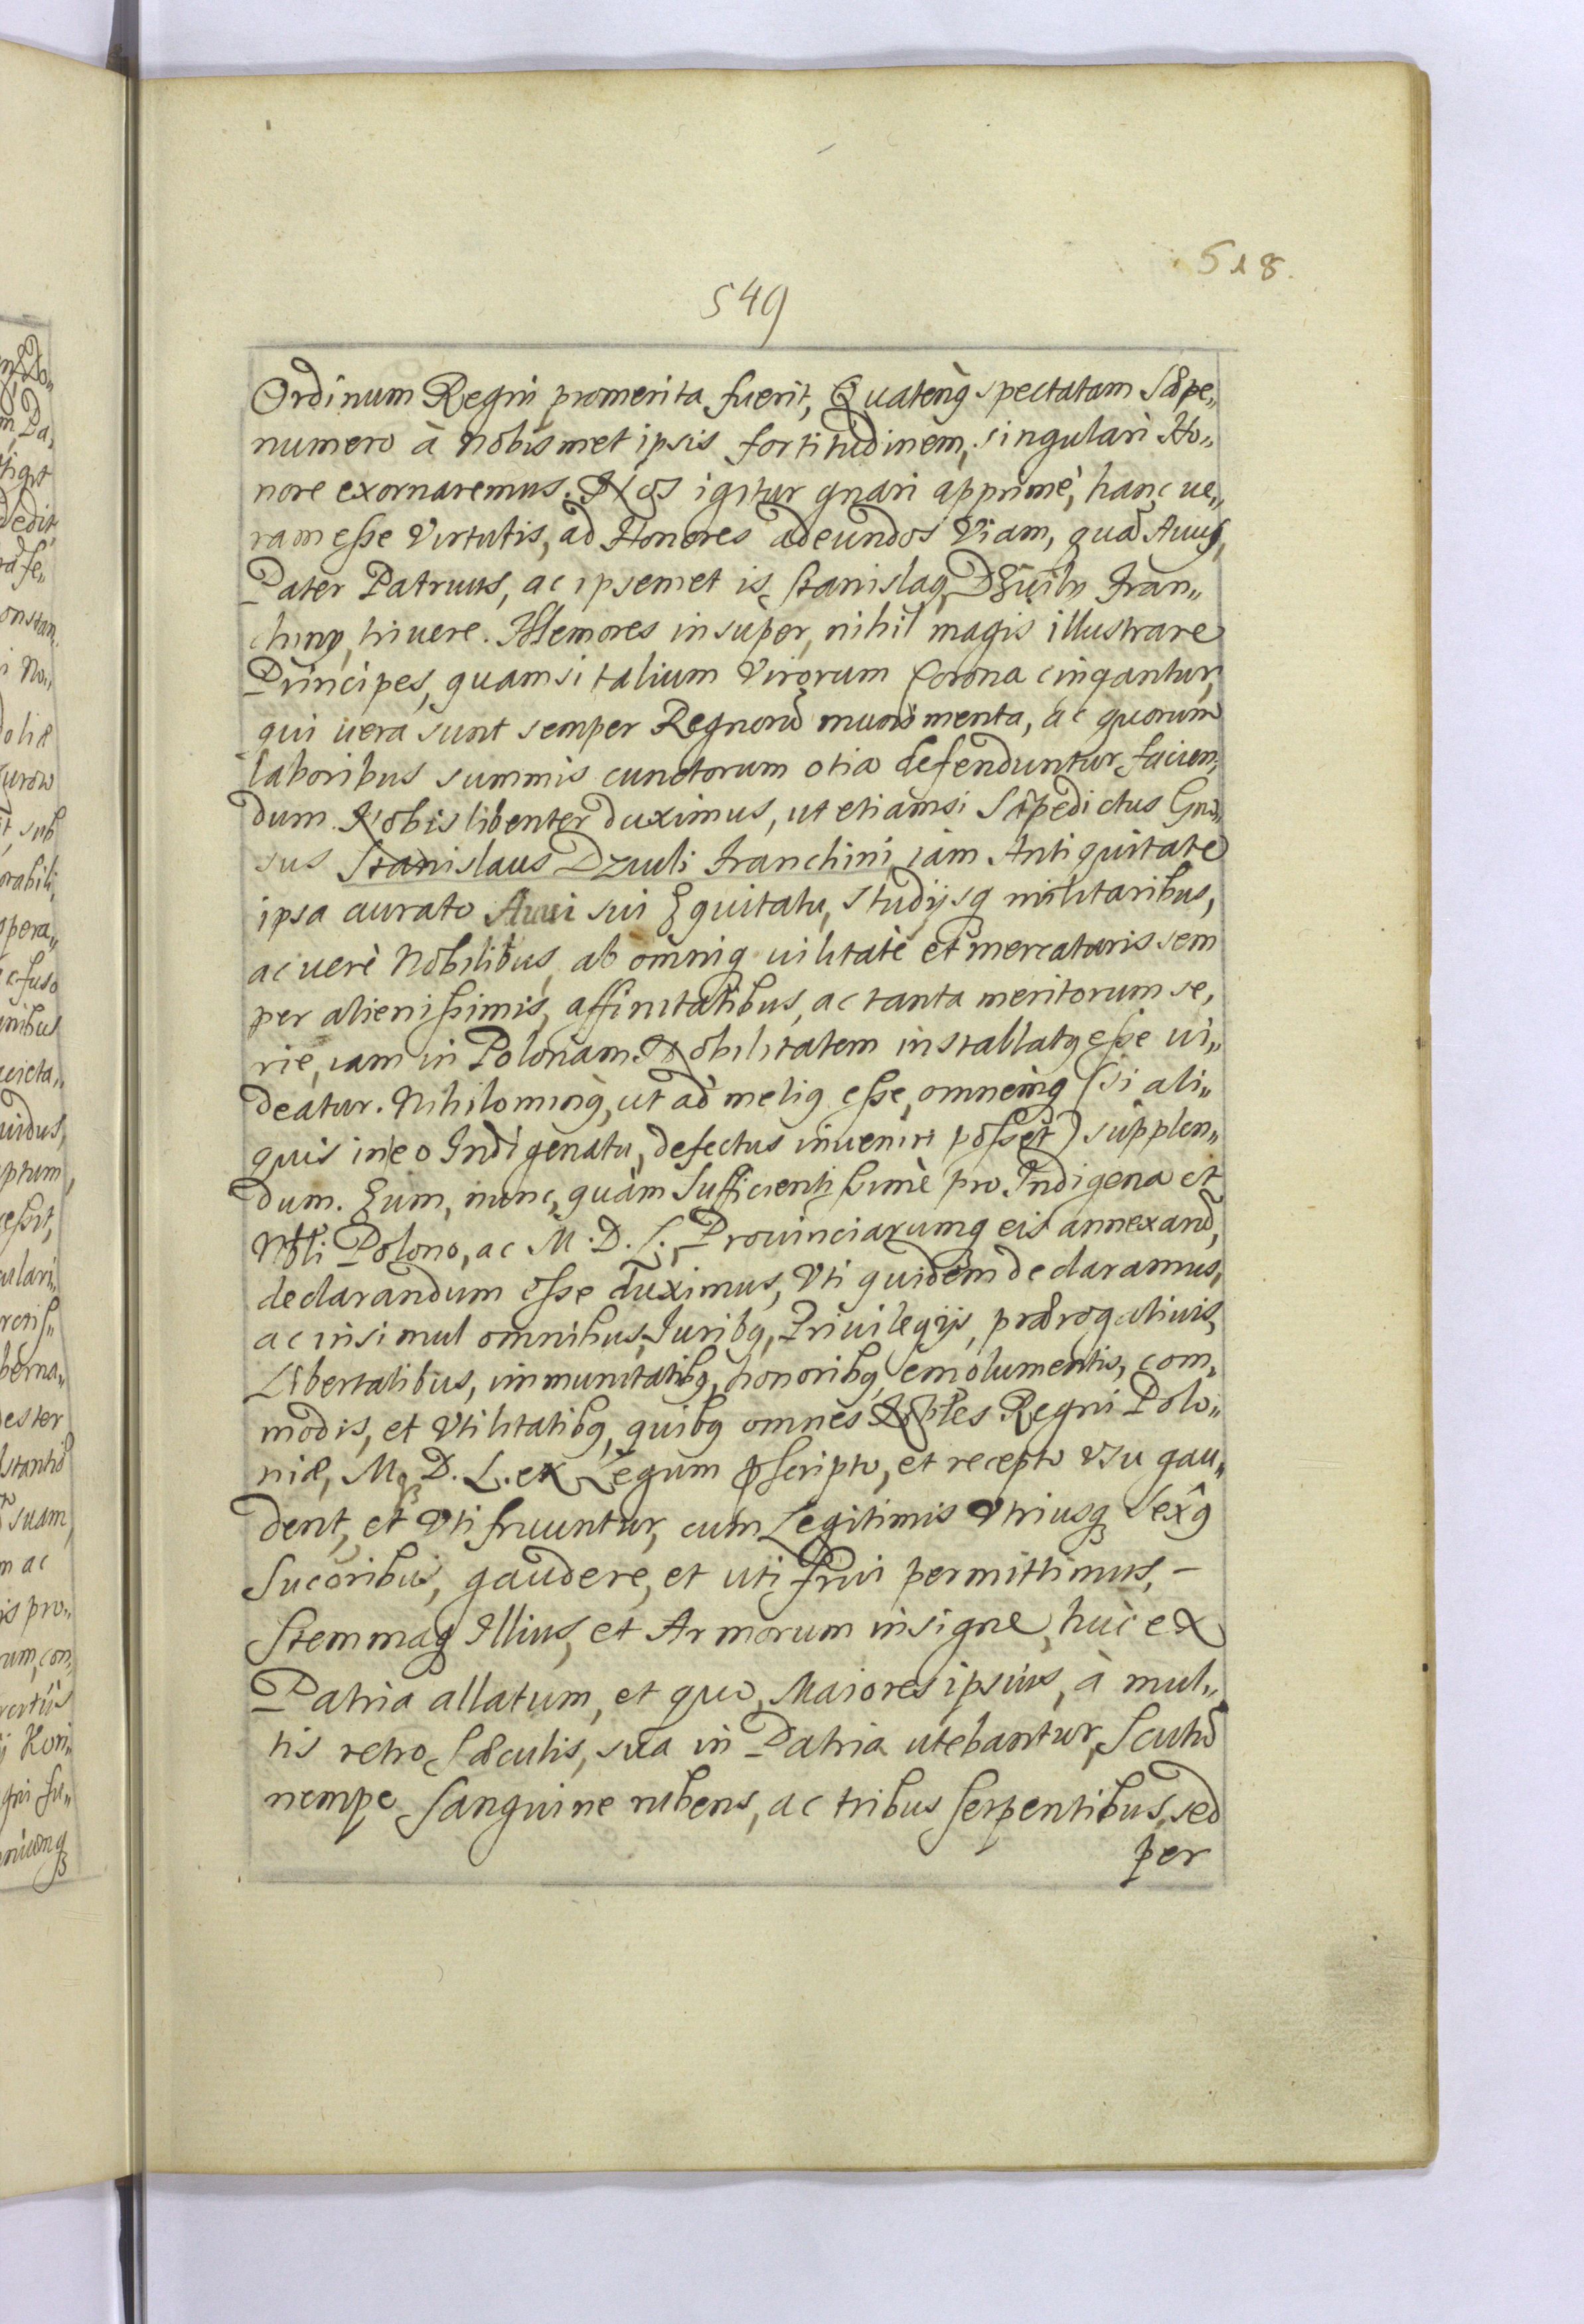 518.
549
Ordinum Regni promerita fuerit, Quatenꝗ spectatam Sæpe„
numero à Nobismet ipsis fortitudinem, singulari Ho„
nore exornaremus. Nos igitur gnari apprimè, hanc ue„
ram esse Virtutis, ad Honores adeundos Viam, quã Auus,
Pater Patruus, ac ipsemet is, Stanislaꝗ Dzŭily Fran„
chiny, triuere. Memores insuper, nihil magis illustrare
Principes, quam si talium Virorum Corona cingantur,
qui uera sunt semper Regnorũ munimenta, ac quorum
laboribus summis cunctorum otia defenduntur, facien„
dum Nobis libenter duximus, ut etiamsi Sæpedictus Gnõ„
sus Stanislaus Dzuuli Franchini, iàm Antiquitate
ipsa aurato Auui sui Equitatu, studijsꝗ militaribus,
ac uerè Nobilibus, ab omniꝗ uilitate et mercaturis sem
per alienissimis, affinitatibus, ac tanta meritorum se„
rie, iam in Polonam Nobilitatem installatꝗ esse ui„
deatur. Nihilominꝗ, ut ad meliꝗ esse, omnemꝗ (si ali„
quis in eo Indigenatu, defectus inueniri posset) supplen„
dum. Eum, nunc, quàm Sufficientissimè pro Indigena et
Nobli Polono, ac M. D. L., Prouinciarumꝗ eis annexarũ,
declarandum esse duximus, Vti quidem declaramus,
ac insimul omnibus, Juribꝗ, Priuilegijs, prærogatiuis,
Libertatibus, immunitatibꝗ, honoribꝗ, emolumentis, com„
modis, et Vtilitatibꝗ, quibꝗ omnes Nobles Regni Polo„
niæ, Mꝗ. D. L. ex Legum p̄scripto, et recepto Vsu gau„
dent, et Vti fruuntur, cum Legitimis Vtriusꝗ Sexꝗ
Sucoribus, gaudere, et uti frui permittimus, –
Stemmaꝗ Illius, et Armorum insigne, huc ex
Patria allatum, et quo, Maiores ipsius, à mul„
tis retro Sæculis, sua in Patria utebantur, Scutũ
nempe Sanguine rubens, ac tribus serpentibus, sed
per